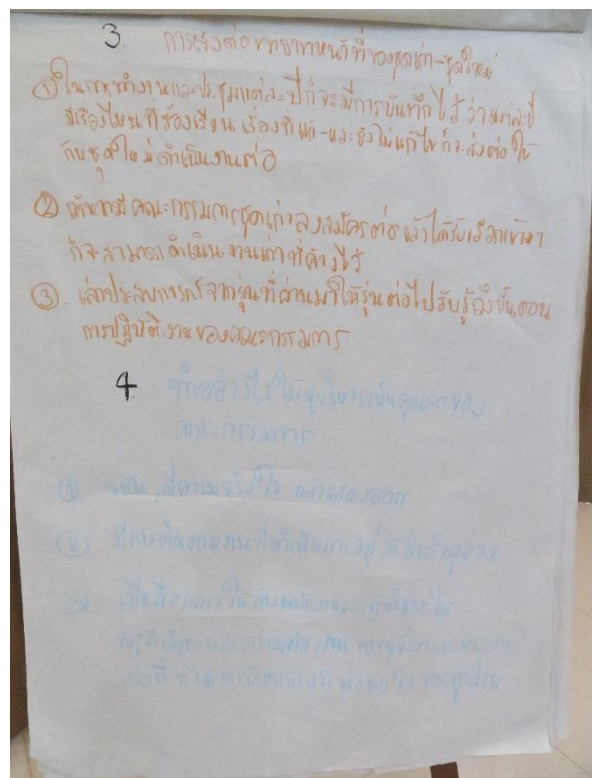 3. การส่งต่อบทบาทหน้าที่ของชุดเก่า-ชุดใหม่
① ในการทำงานและประชุมแต่ละปีก็จะมีการบันทึกไว้ ว่าแต่ละปี
มีเรื่องไหนที่ร้องเรียน เรื่องที่แก้-และยังไม่แก้ไขก็จะส่งต่อให้
กับชุดใหม่ดำเนินงานต่อ
② ถ้าหากมีคณะกรรมการชุดเก่าลงสมัครต่อ แล้วได้รับเลือกเข้ามา
ก็จะสามารถดำเนินงานเก่าที่ค้างไว้
③ เล่าประสบการณ์จากรุ่นที่ผ่านมาให้รุ่นต่อไปรับรู้ถึงขั้นตอน
การปฏิบัติงานของคณะกรรมการ
4. ทำอย่างไรให้ผู้บริหารเห็นคุณค่าของ
คณะกรรมการ
① ขยัน, มีความจริงใจ กล้าแสดงออก
② มีการติดตามงานที่ดำเนินการอยู่ให้สำเร็จลุล่วง
③ เป็นสื่อกลางให้กับพนักงานและผู้บริหาร